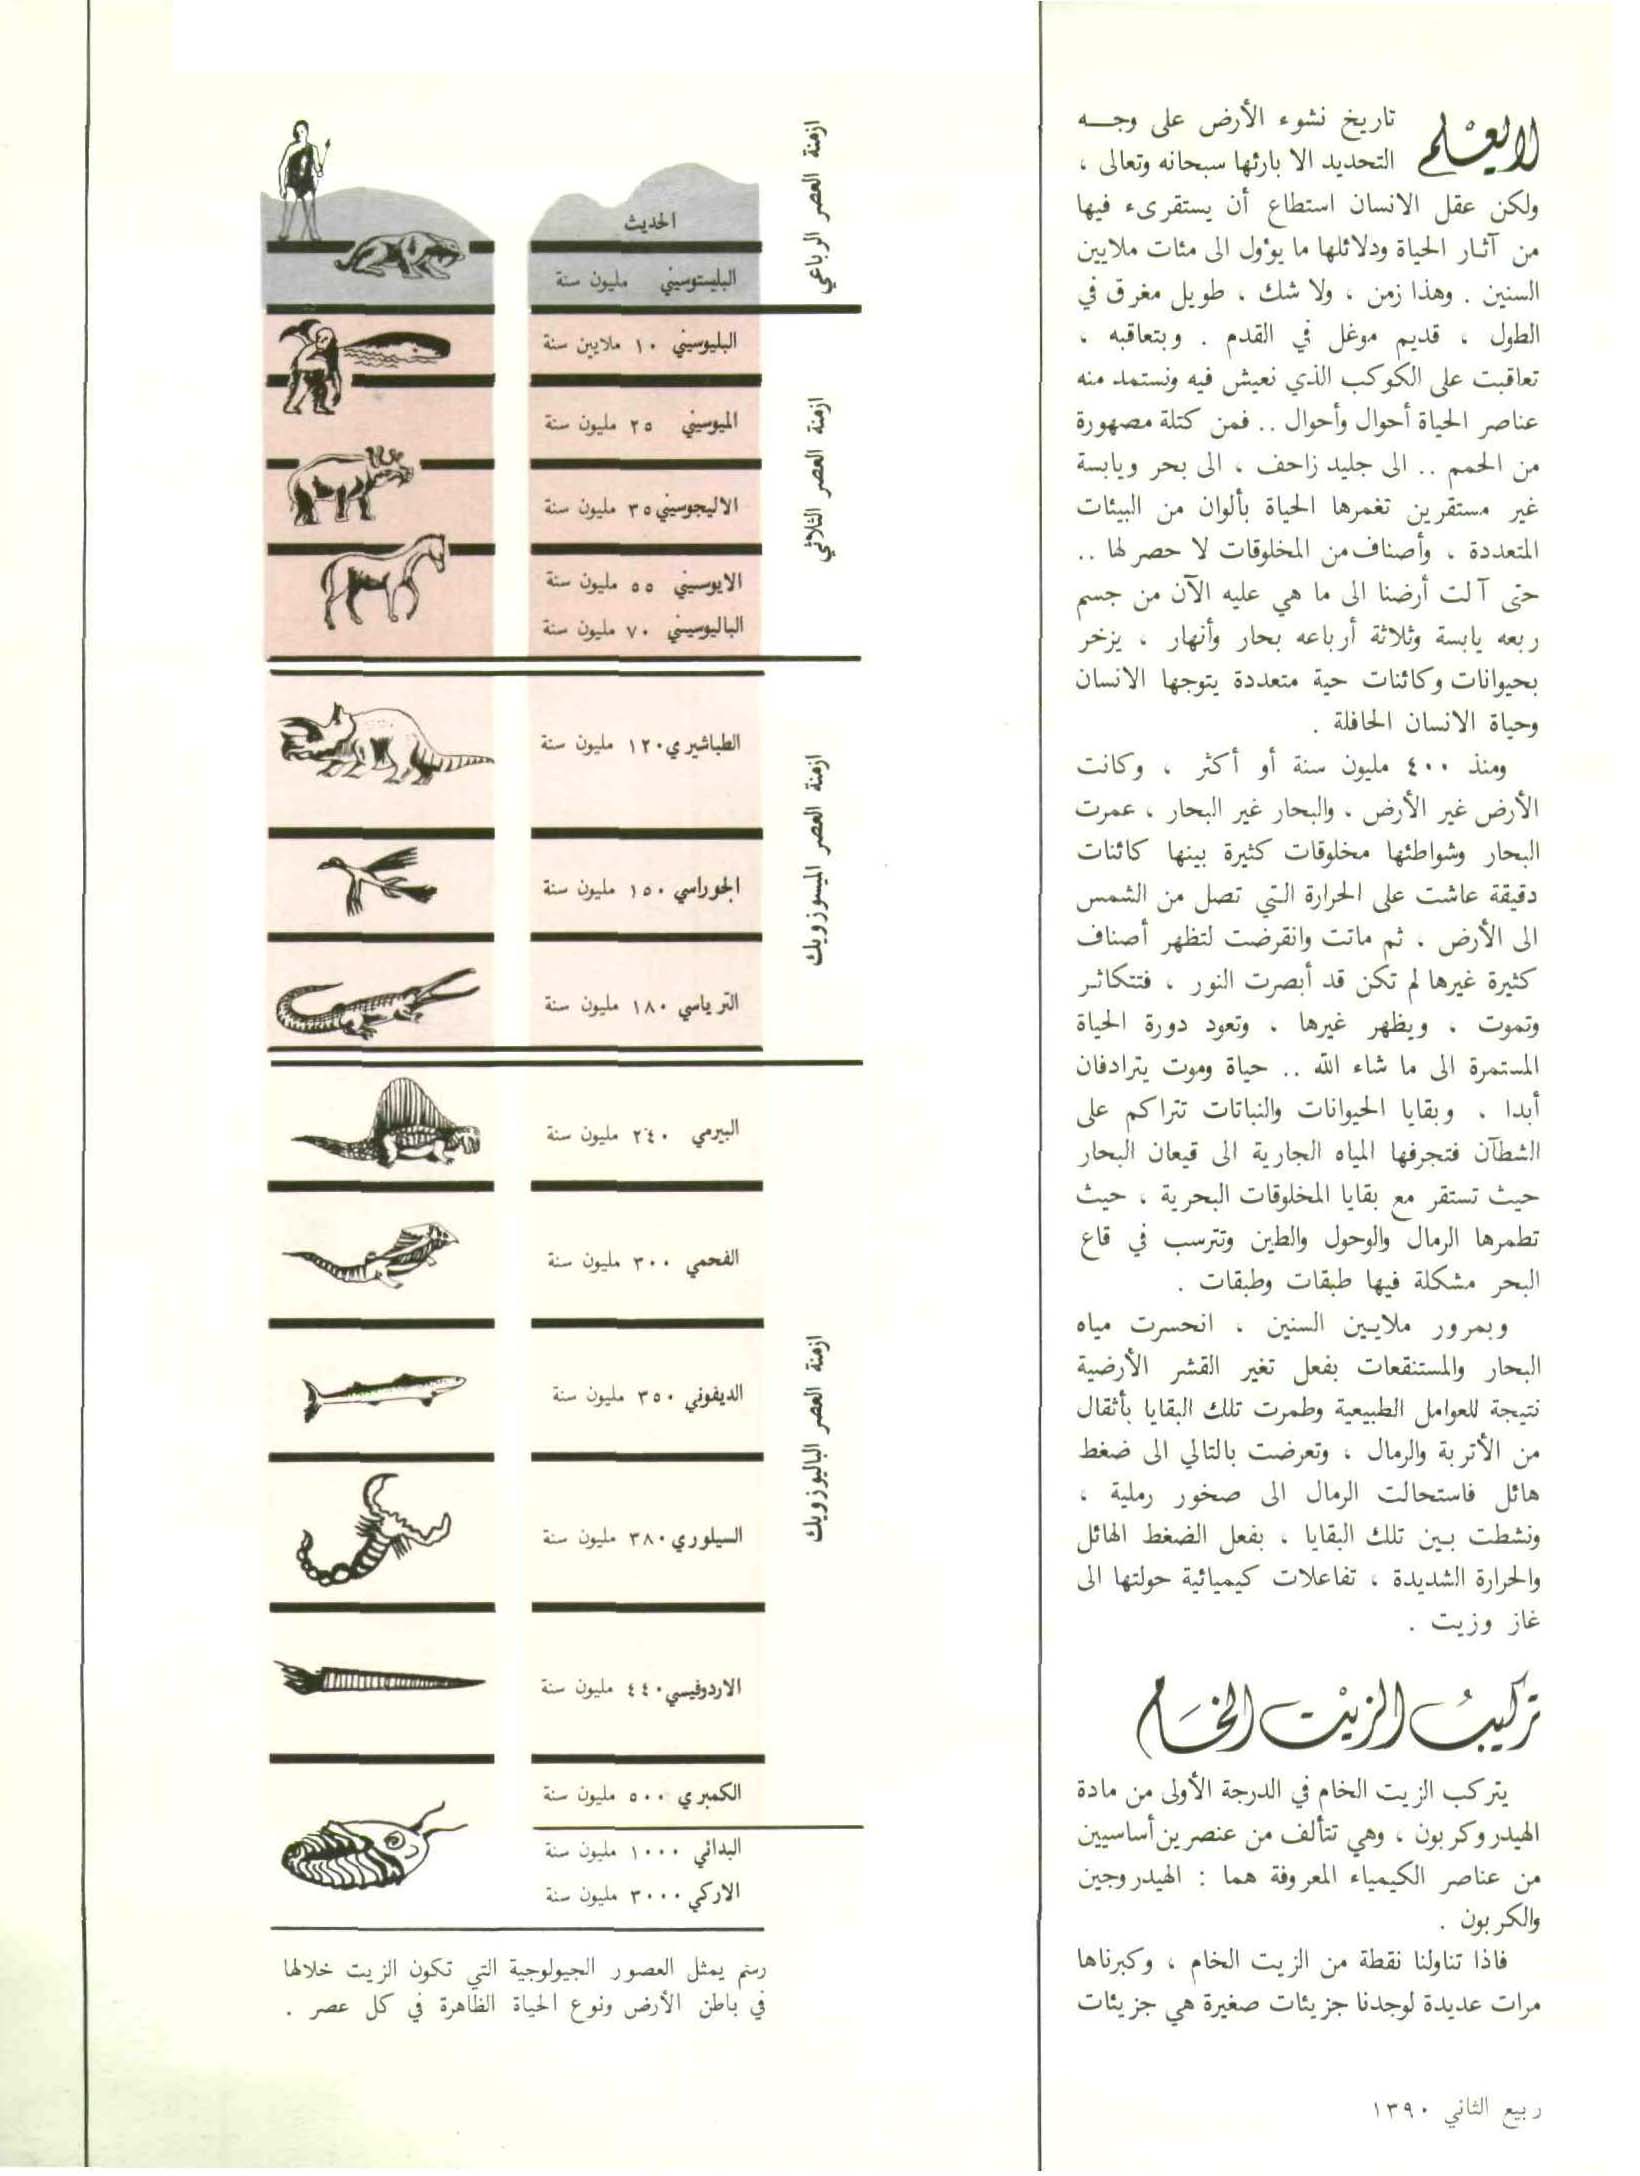 لا يعْلم تاريخ نشوء الأرض على وجـــه
التحديد الا بارئها سبحانه وتعالى ،
ولكن عقل الانسان استطاع أن يستقرىء فيها
من آثـار الحياة ودلائلها ما يوٴول الى مئات ملايين
السنين . وهذا زمن ، ولا شك ، طويل مغرق في
الطول ، قديم موغل في القدم . وبتعاقبه ،
تعاقبت على الكوكب الذي نعيش فيه ونستمد منه
عناصر الحياة أحوال وأحوال .. فمن كتلة مصهورة
من الحمم .. الى جليد زاحف ، الى بحر ويابسة
غير مستقرين تغمرها الحياة بألوان من البيئات
المتعددة ، وأصناف من المخلوقات لا حصر لها ..
حتى آلت أرضنا الى ما هي عليه الآن من جسم
ربعه يابسة وثلاثة أرباعه بحار وأنهار ، يزخر
بحيوانات وكائنات حية متعددة يتوجها الانسان
وحياة الانسان الحافلة .
ومنذ ٤٠٠ مليون سنة أو أكثر ، وكانت
الأرض غير الأرض ، والبحار غير البحار ، عمرت
البحار وشواطئها مخلوقات كثيرة بينها كائنات
دقيقة عاشت على الحرارة الـتي تصل من الشمس
الى الأرض ، ثم ماتت وانقرضت لتظهر أصناف
كثيرة غيرها لم تكن قد أبصرت النور ، فتتكاثـر
وتموت ، ويظهر غيرها ، وتعود دورة الحياة
المستمرة الى ما شاء الله .. حياة وموت يترادفان
أبدا ، وبقايا الحيوانات والنباتات تتراكم على
الشطآن فتجرفها المياه الجارية الى قيعان البحار
حيث تستقر مع بقايا المخلوقات البحرية ، حيث
تطمرها الرمال والوحول والطين وتترسب في قاع
البحر مشكلة فيها طبقات وطبقات .
وبمرور ملايـين السنين ، انحسرت مياه
البحار والمستنقعات بفعل تغير القشر الأرضية
نتيجة للعوامل الطبيعية وطمرت تلك البقايا بأثقال
من الأتربة والرمال ، وتعرضت بالتالي الى ضغط
هائل فاستحالت الرمال الى صخور رملية ،
ونشطت بـين تلك البقايا ، بفعل الضغط الهائل
والحرارة الشديدة ، تفاعلات كيميائية حولتها الى
غاز وزيت .
تركيبُ الزيْت الخَام
يتركب الزيت الخام في الدرجة الأولى من مادة
الهيدروكربون ، وهي تتألف من عنصرين أساسيين
من عناصر الكيمياء المعروفة هما : الهيدروجين
والكربون .
فاذا تناولنا نقطة من الزيت الخام ، وكبرناها
مرات عديدة لوجدنا جزيئات صغيرة هي جزيئات
ازمنة العصر الرباعي
الحديث
البليستوسيني مليون سنة
ازمنة العصر الثلاثي
البليوسيني ١٠ ملايين سنة
الميوسيني ٢٥ مليون سنة
الاليجوسيني ٣٥ مليون سنة
الايوسيني ٥٥ مليون سنة
الباليوسيني ٧٠ مليون سنة
ازمنة العصر الميسوزويك
الطباشيري ١٢٠ مليون سنة
الجوراسي ١٥٠ مليون سنة
الترياسي ١٨٠ مليون سنة
ازمنة العصر الباليوزويك
البيرمي ٢٤٠ مليون سنة
الفحمي ٣٠٠ مليون سنة
الديفوني ٣٥٠ مليون سنة
السيلوري ٣٨٠ مليون سنة
الاردوفيسي ٤٤٠ مليون سنة
الكمبري ٥٠٠ مليون سنة
البدائي ١٠٠٠ مليون سنة
الاركي ٣٠٠٠ مليون سنة
رسم يمثل العصور الجيولوجية التي تكون الزيت خلالها
في باطن الأرض ونوع الحياة الظاهرة في كل عصر .
ربيع الثاني ١٣٩٠